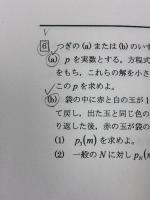 6 つぎの (a) または (b) のいず
(a) p を実数とする。方程式
をもち、これらの解を小さ
この p を求めよ。
(b) 袋の中に赤と白の玉が1
て戻し、出た玉と同じ色の
り返した後、赤の玉が袋の
(1) p₃(m) を求めよ。
(2) 一般の N に対し pN(